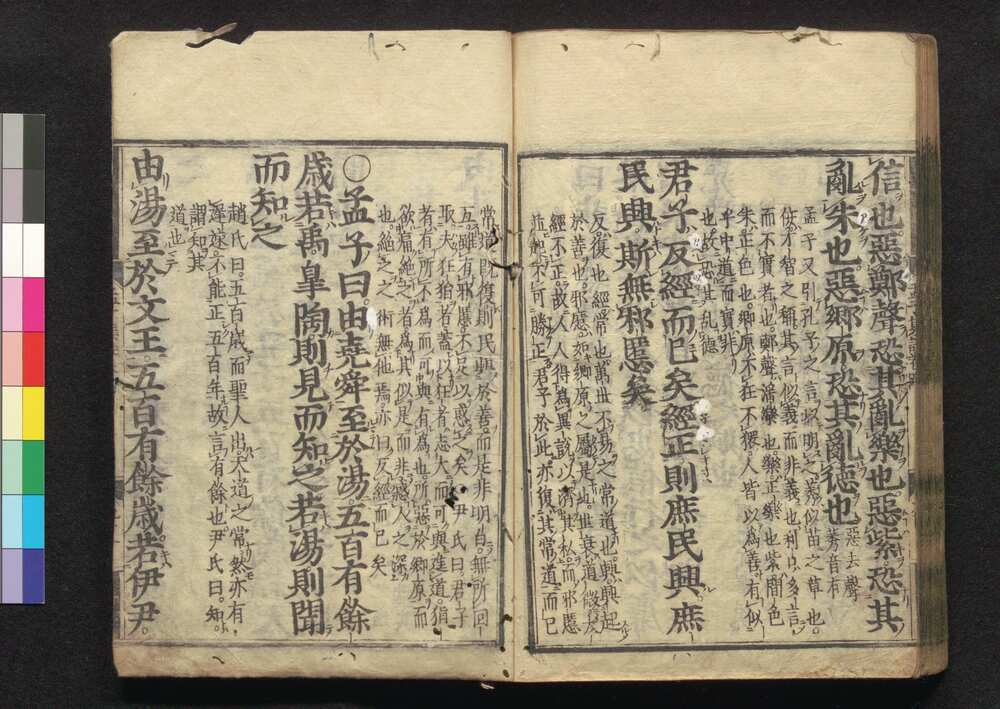 信也惡鄭聲恐其亂樂也惡紫恐其
亂朱也惡鄉原恐其亂德也 惡去聲
莠音有
孟子又引孔子之言以明之莠似苗之草也
佞才智之稱其言似義而非義也利口多言
而不實者也鄭聲淫樂也樂正樂也紫間色
朱正色也鄉原不狂不獧人皆以為善有似
乎中道而實非
也故恐其乱德
君子反經而已矣經正則庶民興庶
民興斯無邪慝矣
反復也經常也萬世不易之常道也興興起
於善也邪慝如鄉原之屬是也世衰道微大
經不正故人人得為異說以濟其私而邪慝
並起不可勝正君子於此亦復其常道而已
常道既復則民興於善而是非明白無所回
互雖有邪慝不足以惑之矣尹氏曰君子
取夫狂獧者蓋以狂者志大而可與進道獧
者有所不為而可與有為也所惡於鄉原而
欲痛絶之者為其似是而非惑人之深
也絶之之術無他焉亦曰反經而已矣
○孟子曰由堯舜至於湯五百有餘
歲若禹皐陶則見而知之若湯則聞
而知之
趙氏曰五百歲而聖人出天道之常然亦有
遲速不能正五百年故言有餘也尹氏曰知
謂知其
道也
由湯至於文王五百有餘歲若伊尹